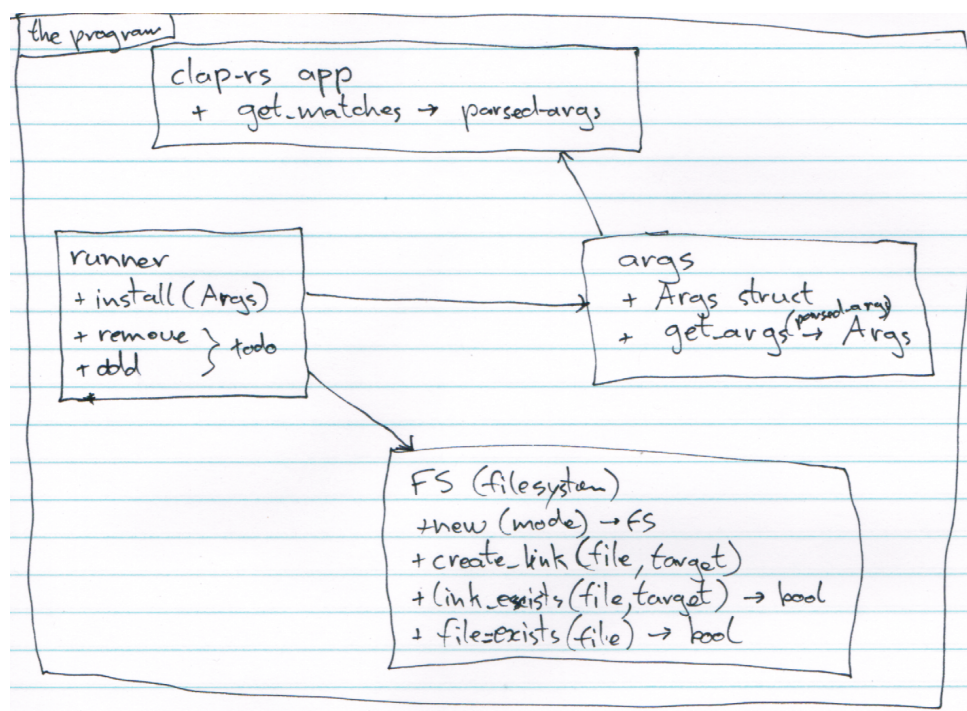 the program
clap-rs app
+ get_matches → parsed-args
runner
+ install(Args)
+ remove
+ add
} todo
args
+ Args struct
+ get_args(parsed-args) → Args
FS (filesystem)
+new (mode) → FS
+ create_link (file, target)
+ link_exists (file, target) → bool
+ file_exists (file) → bool